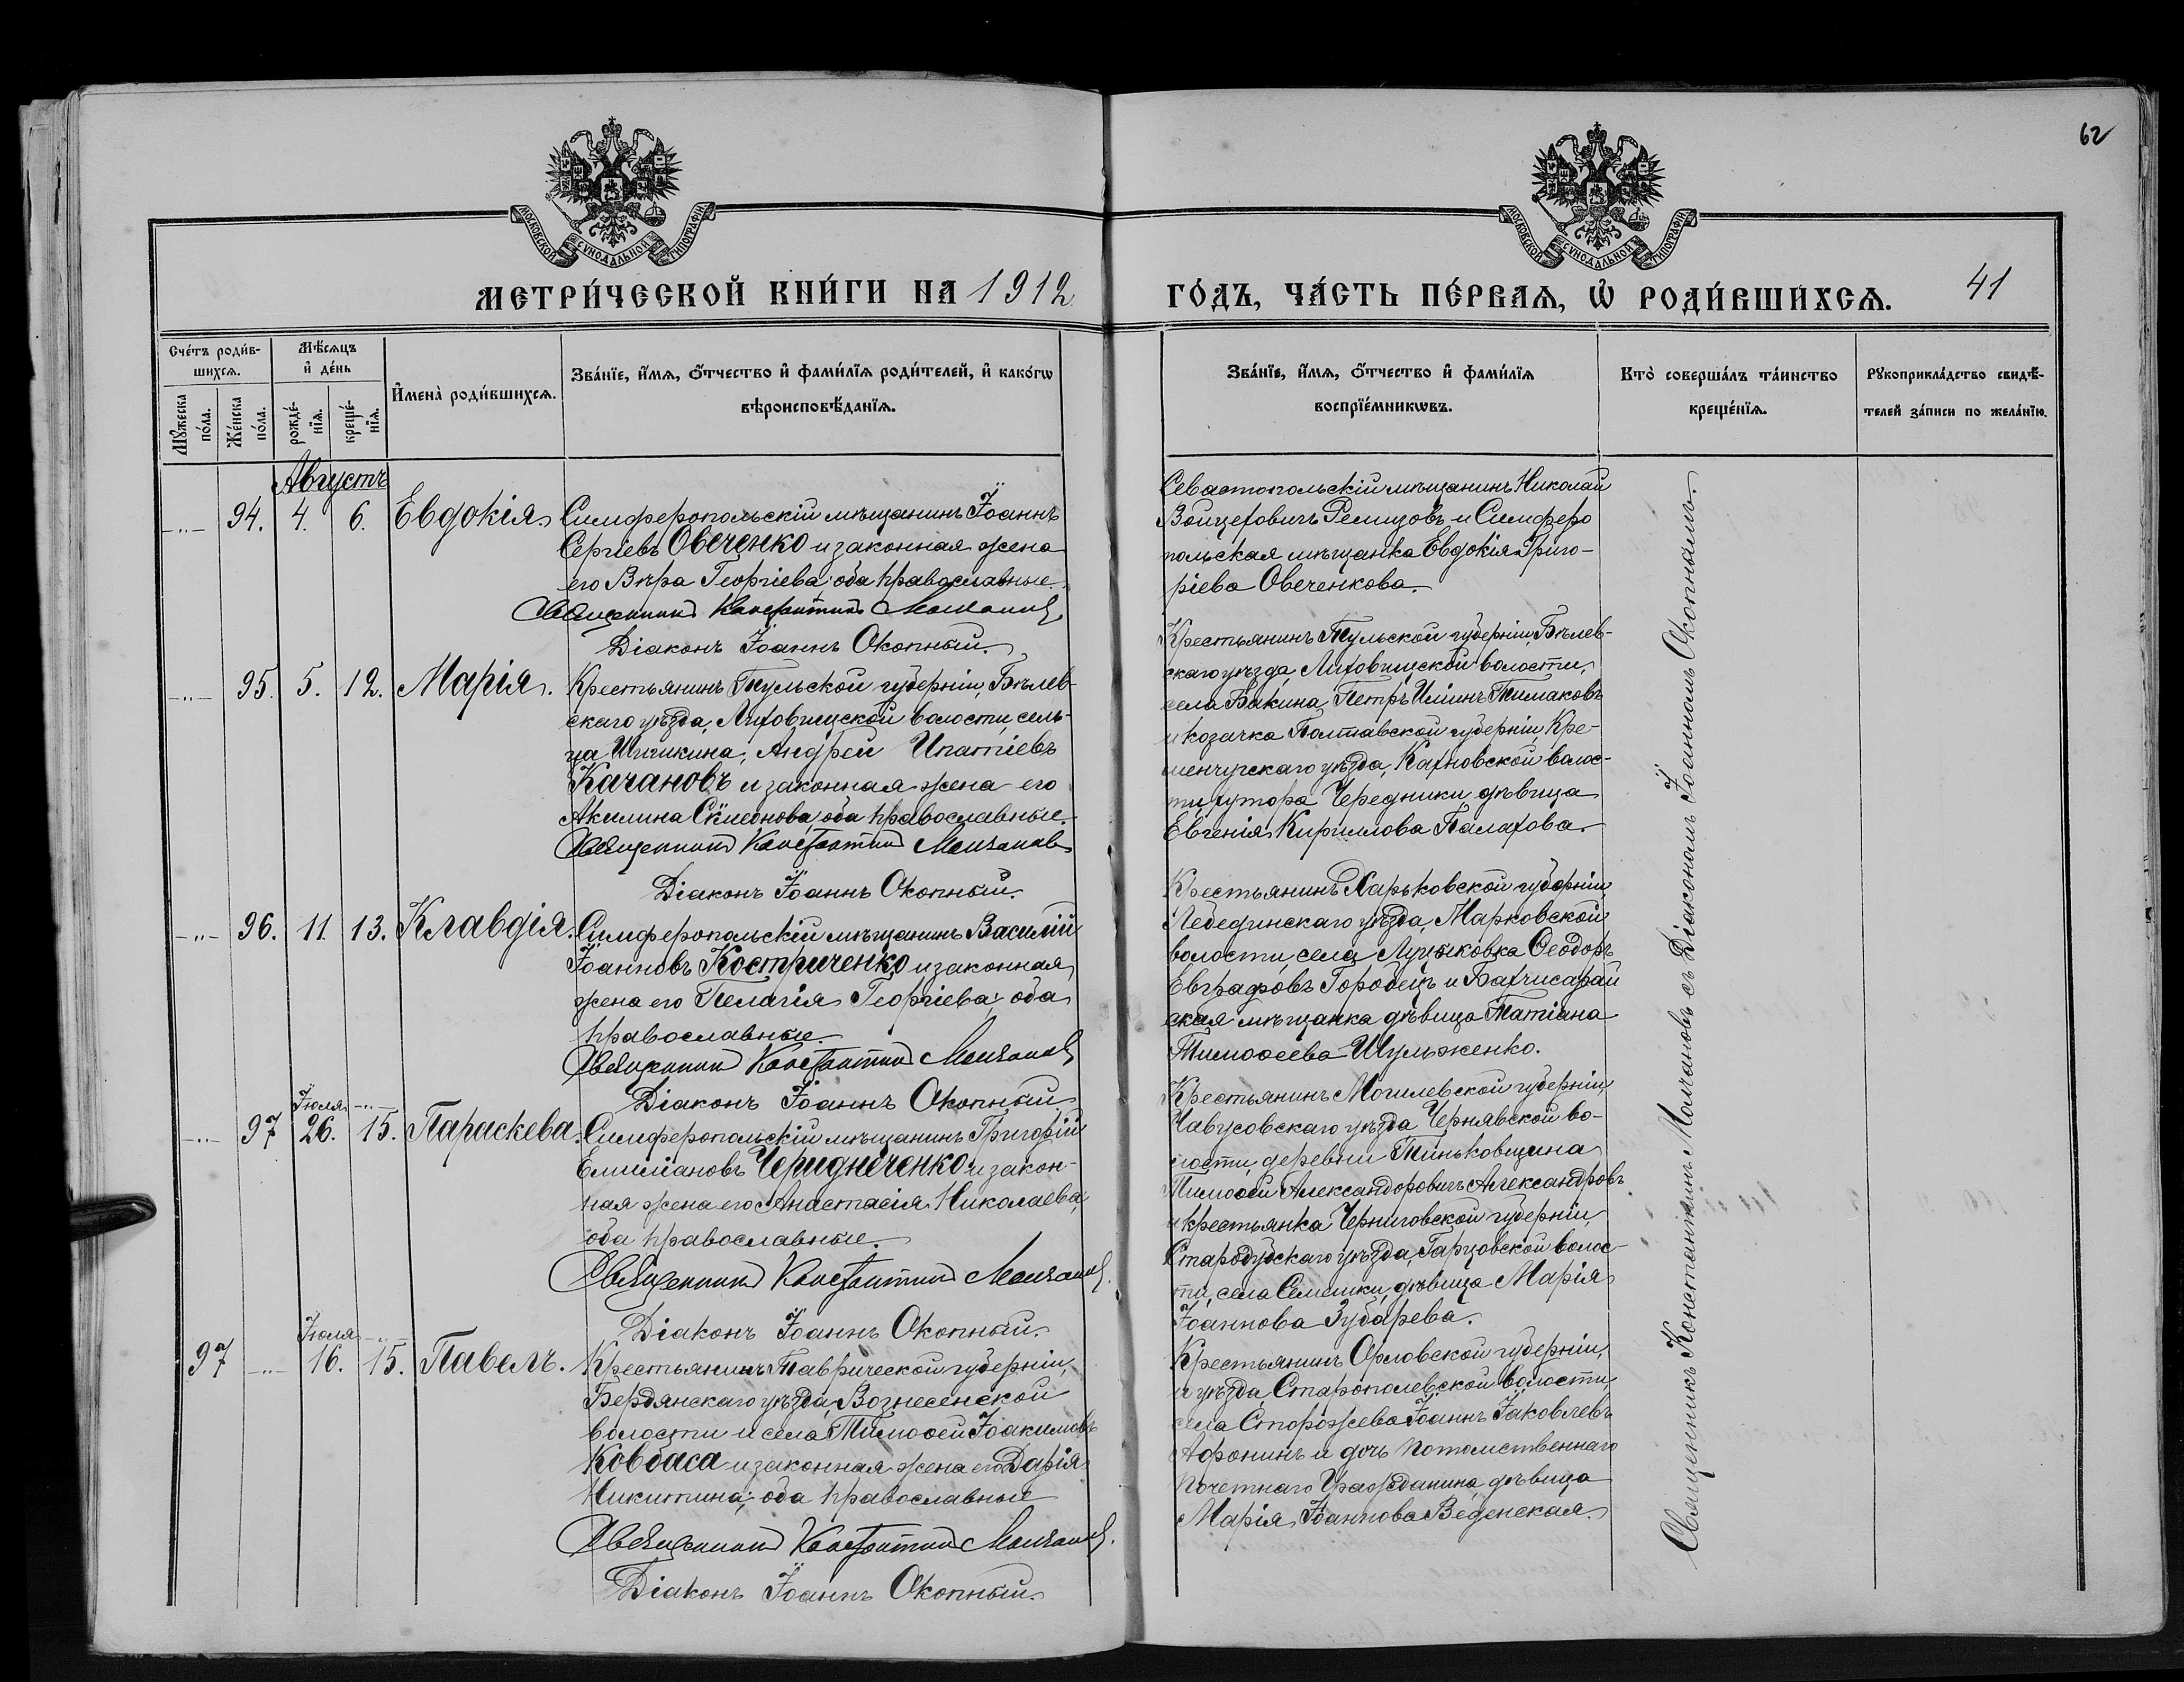 62
МОСКОВСКОЙ СѴНОДАЛЬНОЙ ТИПОГРАФІИ
МОСКОВСКОЙ СѴНОДАЛЬНОЙ ТИПОГРАФІИ
МЕТРИ́ЧЕСКОЙ КНИ́ГИ НА 1912
ГО́ДЪ, ЧА́СТЬ ПЕ́РВАѦ, Ѡ҆ РОДИ́ВШИХСѦ. 41
Сче́тъ роди́в-
шихсѧ.
Мꙋ́жеска
по́ла.
Же́нска
по́ла.
Мѣ́сѧцъ
и҆ де́нь
рожде́-
нїѧ.
креще́-
нїѧ.
И҆мена̀ роди́вшихсѧ.
Зва́нїе, и҆́мѧ, ѻ҆́тчество и҆ фами́лїѧ роди́телей, и҆ како́гѡ
вѣроисповѣ́данїѧ.
Зва́нїе, и҆́мѧ, ѻ҆́тчество и҆ фами́лїѧ
воспрїе́мникѡвъ.
Кто̀ соверша́лъ та́инство
креще́нїѧ.
Рꙋкоприкла́дство свидѣ́-
телей за́писи по жела́нїю.
Августъ
-„- 94. 4. 6. Евдокія.
Симферопольскій мѣщанинъ Іоаннъ
Сергіевъ Овеченко и законная жена
его Вѣра Георгіева; оба православные.
Священникъ Константинъ Молчановъ
Діаконъ Іоаннъ Окопный.
Севастопольскій мѣщанинъ Николай
Войцеховичъ Ремизовъ и Симферо
польская мѣщанка Евдокія Григо-
ріева Овеченкова.
-„- 95. 5. 12. Марія.
Крестьянинъ Тульской губерніи, Бѣлев-
скаго уѣзда, Литовищской волости, сель-
ца Шишкина, Андрей Ипатіевъ
Качановъ и законная жена его
Акилина Сѵмеонова; оба православные.
Священникъ Константинъ Молчановъ
Діаконъ Іоаннъ Окопный.
Крестьянинъ Тульской губерніи, Бѣлев-
скаго уѣзда, Литовищской волости,
села Вакина, Петръ Тимаковъ
и козачка Полтавской губерніи, Кре-
менчугскаго уѣзда, Кахновской волос-
ти, хутора Чередники, дѣвица
Евгенія Кириллова Палахова.
-„- 96. 11. 13. Клавдія.
Симферопольскій мѣщанинъ Василій
Іоанновъ Костриченко и законная
жена его Пелагія Георгіева; оба
православные.
Священникъ Константинъ Молчановъ
Діаконъ Іоаннъ Окопный
Крестьянинъ Харьковской губерніи
Лебединскаго уѣзда, Марковской
волости, села Луциковка Ѳеодоръ
Евграфовъ Городецъ и Бахчисарай
ская мѣщанка дѣвица Татіана
Тимоѳеева Шульженко.
Іюля -„-
-„- 97 26. 15. Параскева.
Симферопольскій мѣщанинъ Григорій
Емиліановъ Чередниченко и закон-
ная жена его Анастасія Николаева;
оба православные.
Священникъ Константинъ Молчановъ.
Діаконъ Іоаннъ Окопный.
Крестьянинъ Могилевской губерніи,
Чавусовскаго уѣзда Чернявской во-
лости, деревни Тиньковщина
Тимоѳей Александровичъ Александровъ
и крестьянка Черниговской губерніи,
Стародубскаго уѣзда, Гарцовской волос-
ти, села Селешки, дѣвица Марія
Іоаннова Зубарева.
Іюля -„-
97 -„- 16. 15. Павелъ.
Крестьянинъ Таврической губерніи,
Бердянскаго уѣзда, Вознесенской
волости и села Тимоѳей Іоакимовъ
Ковбаса и законная жена его Дарія
Никитина; оба православные
Священникъ Константинъ Молчановъ.
Діаконъ Іоаннъ Окопный.
Крестьянинъ Орловской губерніи,
и уѣзда, Старополевской волости,
села Сторожева Іоаннъ Іаковлевъ
Афонинъ и дочь потомственнаго
почетнаго гражданина, дѣвица
Марія Іоаннова Веденская.
Священникъ Константинъ Молчановъ съ Діакономъ Іоанномъ Окопнымъ.